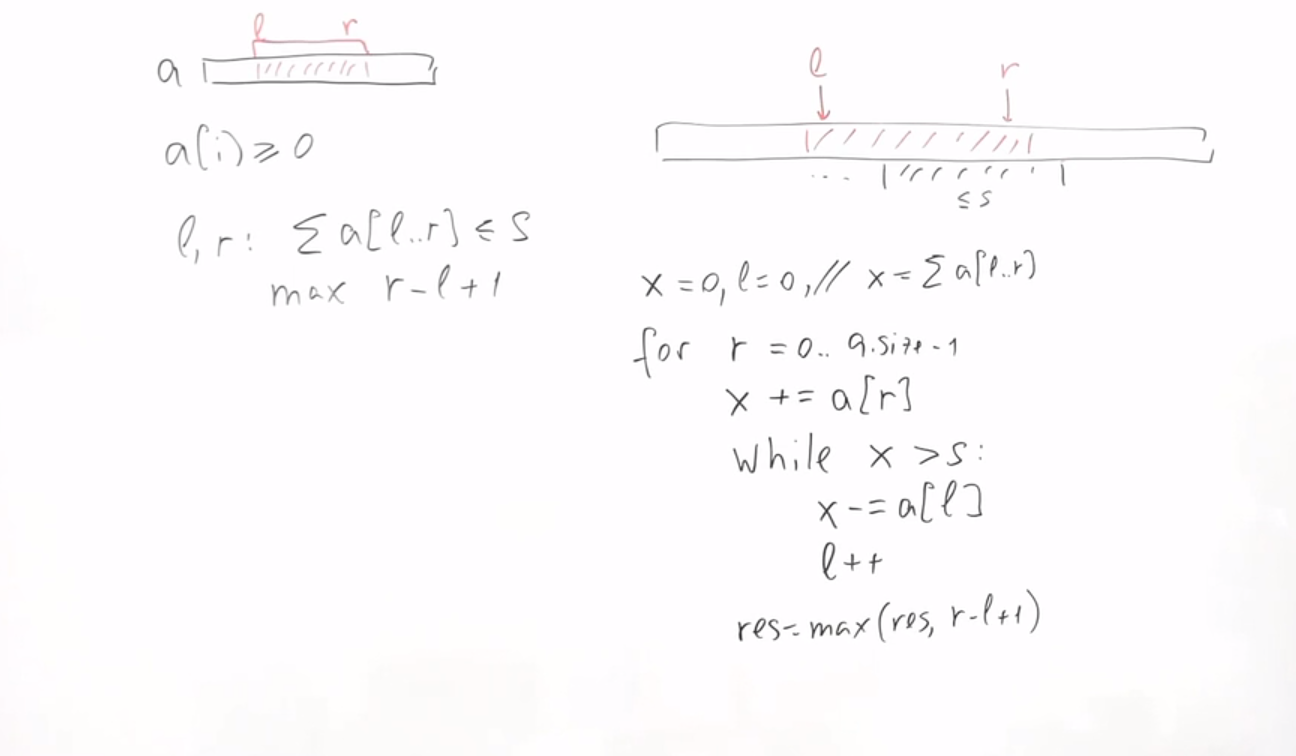 l r
a
a[i] ⩾ 0
l, r: ∑ a[l..r] ≤ S
max r-l+1
l r
... ≤ S
x = 0, l = 0, // x = ∑ a[l..r]
for r = 0.. a.size-1
x += a[r]
while x > S:
x -= a[l]
l++
res = max(res, r-l+1)